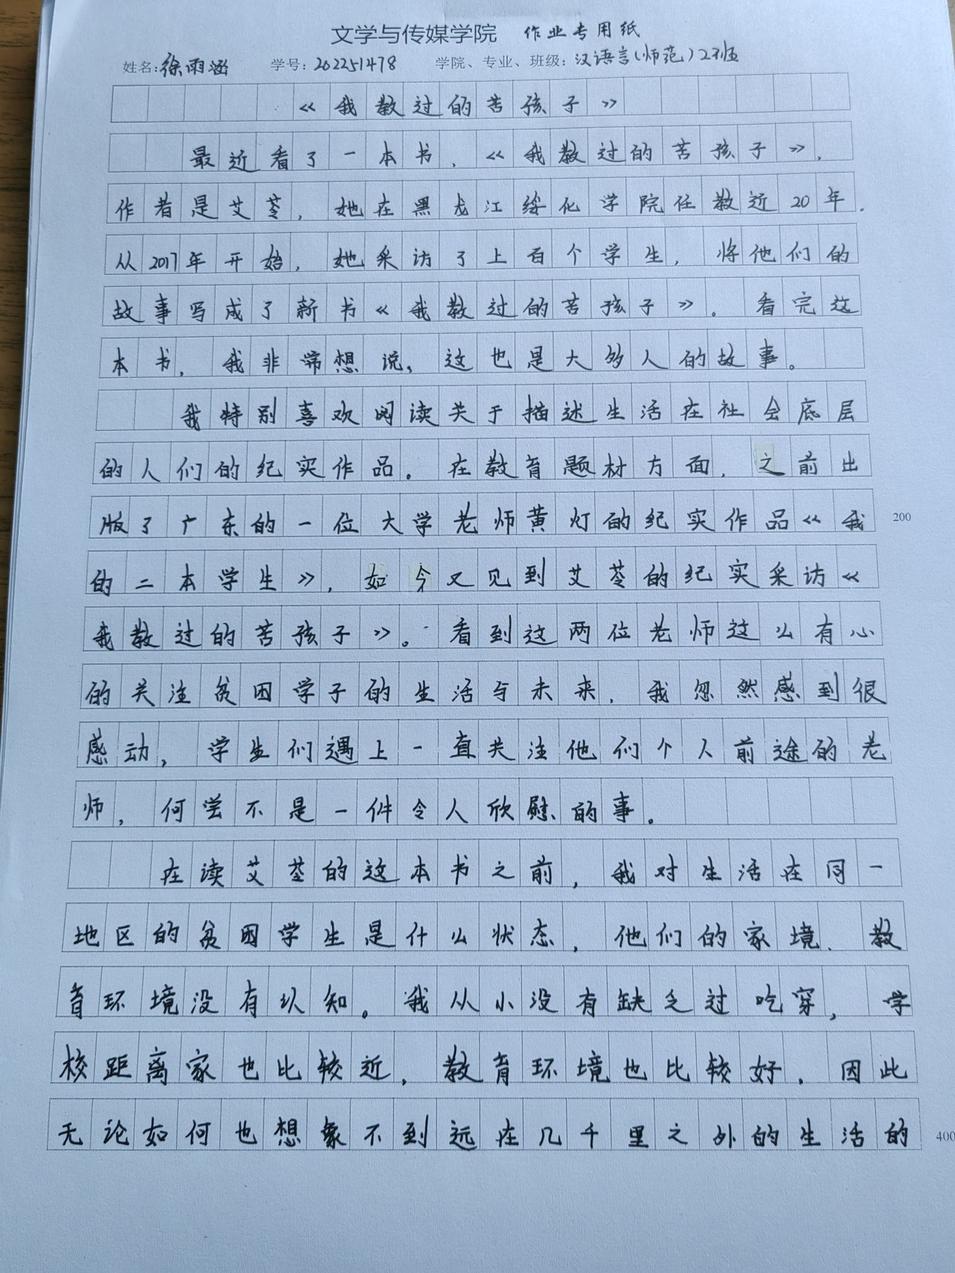 文学与传媒学院 作业专用纸
姓名:徐雨涵 学号:202251478 学院、专业、班级:汉语言(师范)2班
《我教过的苦孩子》
最近看了一本书,《我教过的苦孩子》,
作者是艾苓,她在黑龙江绥化学院任教近20年.
从2017年开始,她采访了上百个学生,将他们的
故事写成了新书《我教过的苦孩子》。看完这
本书,我非常想说,这也是大多人的故事。
我特别喜欢阅读关于描述生活在社会底层
的人们的纪实作品。在教育题材方面,之前出
版了广东的一位大学老师黄灯的纪实作品《我 200
的二本学生》,如今又见到艾苓的纪实采访《
我教过的苦孩子》。看到这两位老师这么有心
的关注贫困学子的生活与未来,我忽然感到很
感动,学生们遇上一直关注他们个人前途的老
师,何尝不是一件令人欣慰的事。
在读艾苓的这本书之前,我对生活在同一
地区的贫困学生是什么状态,他们的家境、教
育环境没有认知。我从小没有缺乏过吃穿,学
校距离家也比较近,教育环境也比较好,因此
无论如何也想象不到远在几千里之外的生活的 400